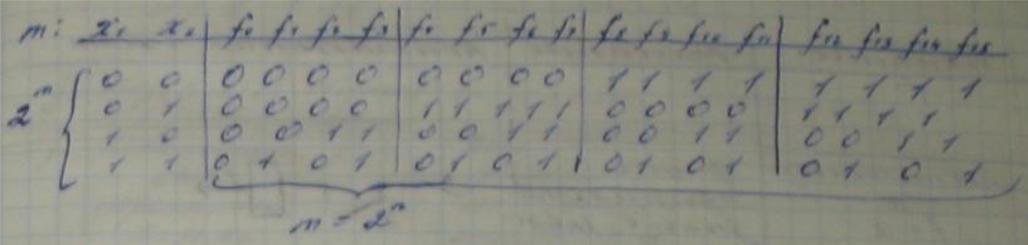 m: x₁ x₂ f₀ f₁ f₂ f₃ f₄ f₅ f₆ f₇ f₈ f₉ f₁₀ f₁₁ f₁₂ f₁₃ f₁₄ f₁₅
0 0 0 0 0 0 0 0 0 0 1 1 1 1 1 1 1 1
2ⁿ { 0 1 0 0 0 0 1 1 1 1 1 0 0 0 0 1 1 1 1
1 0 0 0 1 1 0 0 1 1 0 0 1 1 0 0 1 1
1 1 0 1 0 1 0 1 0 1 0 1 0 1 0 1 0 1
m = 2ⁿ